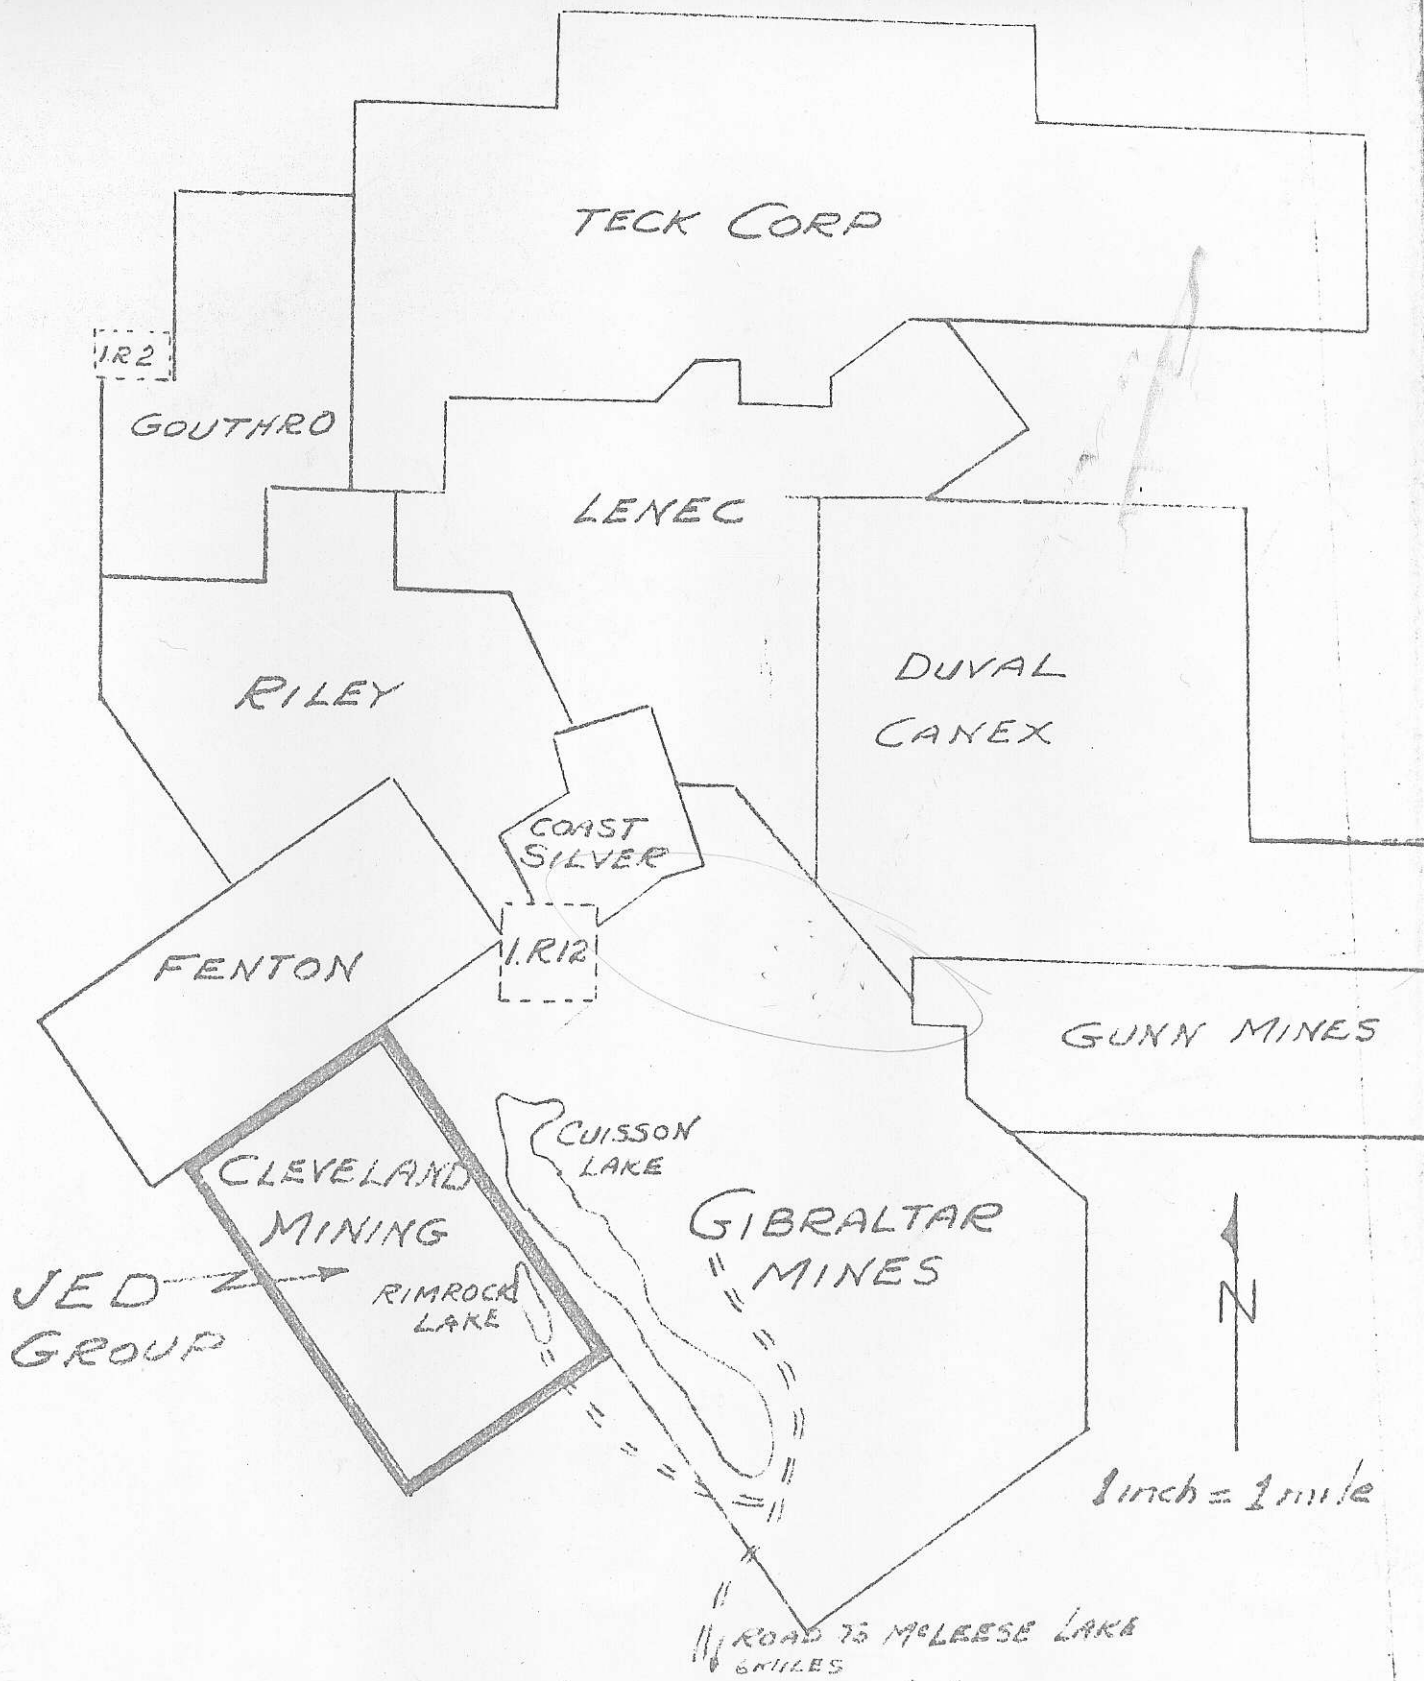 TECK CORP
I.R 2
GOUTHRO
LENEC
DUVAL
CANEX
RILEY
COAST
SILVER
I.R12
FENTON
GUNN MINES
CUISSON
LAKE
CLEVELAND
MINING
GIBRALTAR
MINES
JED
GROUP
RIMROCK
LAKE
N
1 inch = 1 mile
ROAD TO McLEESE LAKE
6 MILES